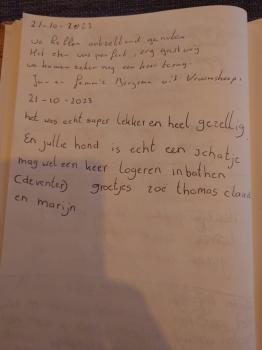 21-10-2023
we hebben ontzettend genoten
Het eten was perfect, erg gastvrij
we komen zeker nog een keer terug.
Jan en Femmie Bergsma uit Vroomshoop.
21-10-2023
het was echt super lekker en heel gezellig
En jullie hond is echt een schatje
mag wel een keer logeren in bathen
(deventer) groetjes zoë thomas claudi
en marijn